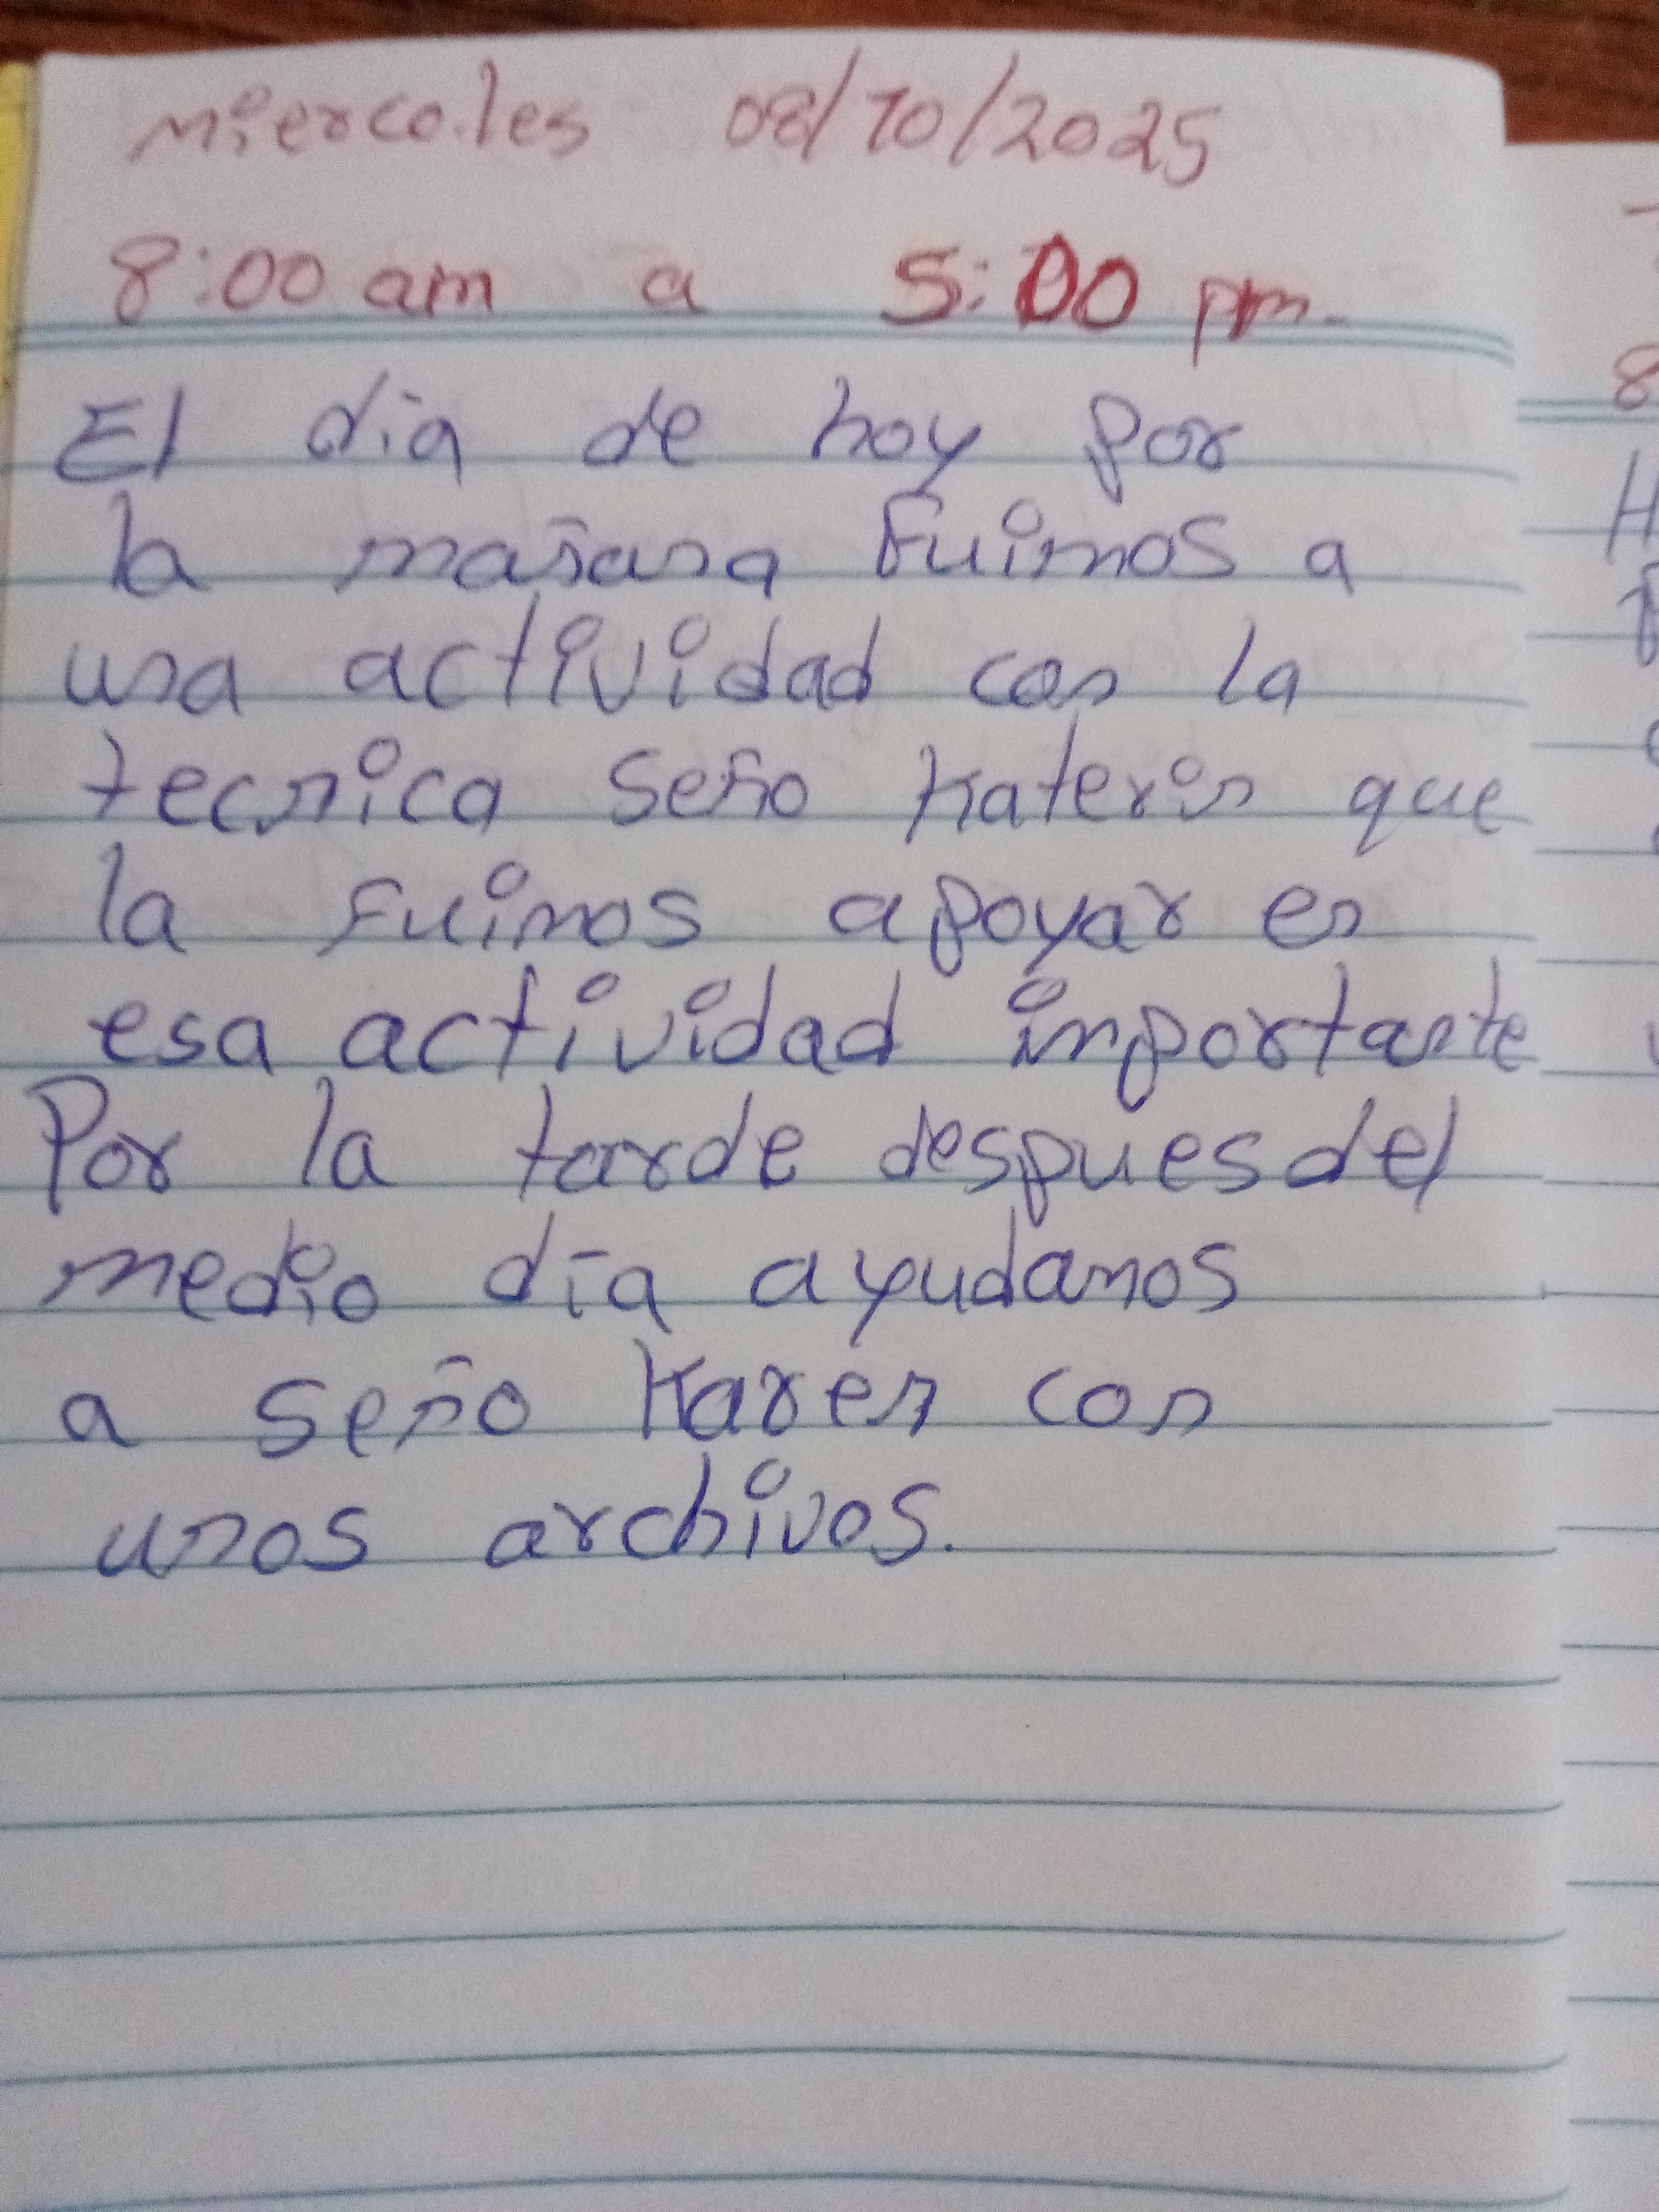 Miercoles 08/10/2025
8:00 am a 5:00 pm.
El dia de hoy por
la mañana Fuimos a
una actividad con la
tecnica Seño Katerin que
la Fuimos apoyar en
esa actividad importante
Por la tarde despues del
medio día ayudamos
a Seño Karen con
unos archivos.